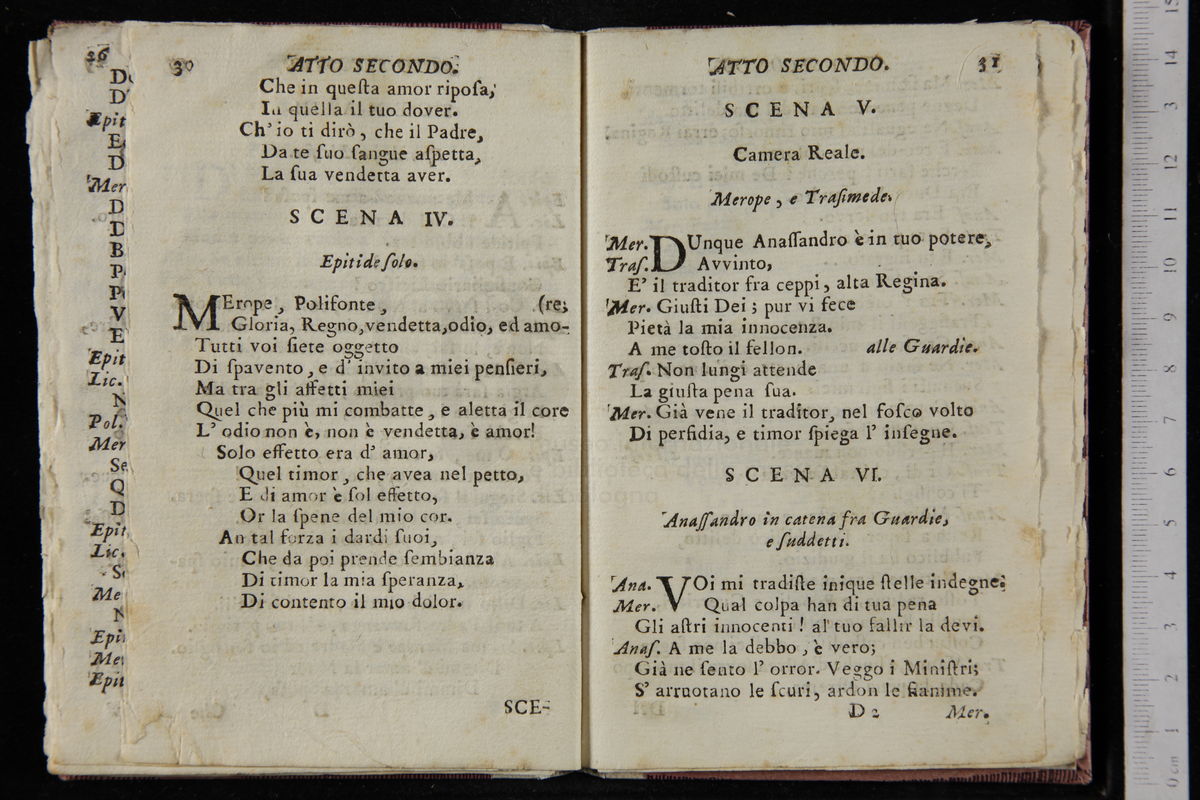 36
D
D'
Epit
E
D
Mer
D
D
B
P
P
V
E
Epit
Lic.
N
Pol.
Mer
Se
Q
D
Epit
Lic.
Se
Me
N
Epi
Me
Epit
30 ATTO SECONDO.
Che in queſta amor ripoſa,
In quella il tuo dover.
Ch' io ti dirò, che il Padre,
Da te ſuo ſangue aſpetta,
La ſua vendetta aver.
SCENA IV.
Epitide ſolo.
MErope, Polifonte, (re,
Gloria, Regno, vendetta, odio, ed amo-
Tutti voi ſiete oggetto
Di ſpavento, e d' invito a miei penſieri,
Ma tra gli affetti miei
Quel che più mi combatte, e aletta il core
L' odio non è, non è vendetta, è amor!
Solo effetto era d' amor,
Quel timor, che avea nel petto,
E di amor è ſol effetto,
Or la ſpene del mio cor.
An tal forza i dardi ſuoi,
Che da poi prende ſembianza
Di timor la mia ſperanza,
Di contento il mio dolor.
SCE-
ATTO SECONDO. 31
SCENA V.
Camera Reale.
Merope, e Traſimede.
Mer. DUnque Anaſſandro è in tuo potere,
Traſ. Avvinto,
E' il traditor fra ceppi, alta Regina.
Mer. Giuſti Dei; pur vi fece
Pietà la mia innocenza.
A me toſto il fellon. alle Guardie.
Traſ. Non lungi attende
La giuſta pena ſua.
Mer. Già vene il traditor, nel foſco volto
Di perfidia, e timor ſpiega l' inſegne.
SCENA VI.
Anaſſandro in catena fra Guardie,
e ſuddetti.
Ana. VOi mi tradiſte inique ſtelle indegne.
Mer. Qual colpa han di tua pena
Gli aſtri innocenti! al tuo fallir la devi.
Anaſ. A me la debbo, è vero;
Già ne ſento l' orror. Veggo i Miniſtri;
S' arruotano le ſcuri, ardon le fiamme.
D 2 Mer.
0 cm 1 2 3 4 5 6 7 8 9 10 11 12 13 14 15